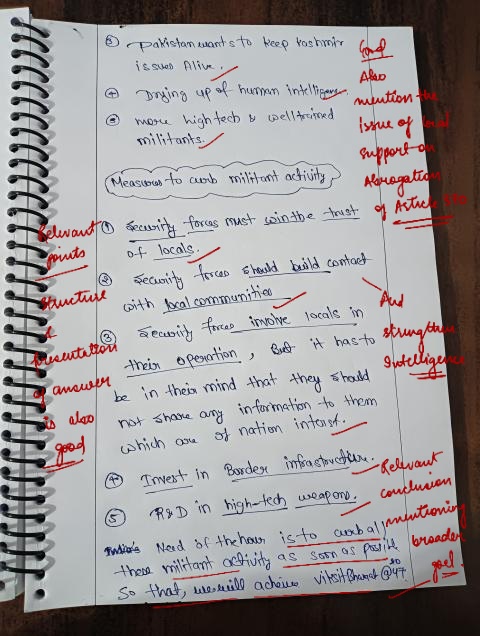 ③ Pakistan wants to keep Kashmir
issues Alive.
④ Drying up of human intelligence
⑤ more high tech & well trained
militants.
Measures to curb militant activity
① Security forces must win the trust
of locals.
② Security forces should build contact
with local communities
③ Security forces involve locals in
their operation, But it has to
be in their mind that they should
not share any information to them
which are of nation interst.
④ Invest in Border infrastructure.
⑤ R&D in high-tech weapons.
Need of the hour is to curb all
these militant activity as soon as possible
so that, we will achieve viksit Bharat @ 47.
Good
Also
mention the
issue of local
support on
Abrogation
of Article 370
And
strengthen
Intelligence
Relevant
conclusion
mentioning
broader
goal.
Relevant
points
Structure
&
presentation
of answer
is also
good